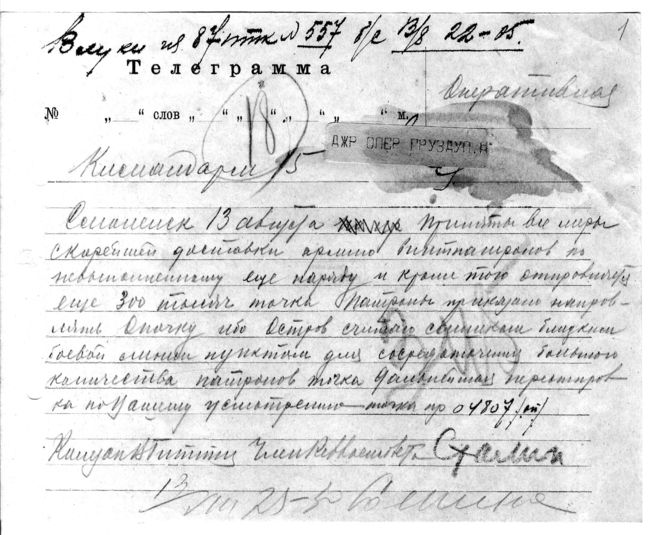 Влуки из 87 птк № 557 б/с 13/8 22-05. 1
Телеграмма
Оперативная
№ „ “ слов „ “ „ “ „ “ „ “ м.
18
ДЖР ОПЕР ГРУЗДУП.А
Командарм 15
Смоленск 13 августа Приняты все меры
скорейшей доставки армию винтпатронов по
невыполненному еще наряду и кроме того отправляется
еще 300 тысяч точка Патроны приказано направ-
лять Опочку ибо Остров считаю слишком близким
боевой линии пунктом для сосредоточения большого
количества патронов точка Дальнейшая переотправ-
ка по Вашему усмотрению точка нр 04807/оп/
Член Реввоенсовета Сталин
13